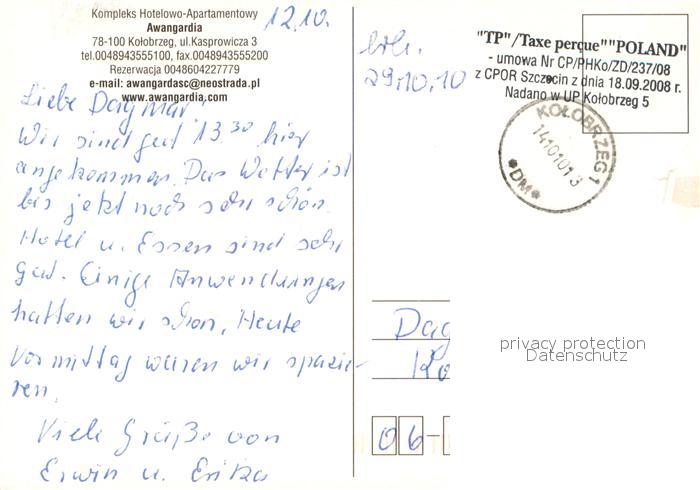 Kompleks Hotelowo-Apartamentowy
Awangardia
78-100 Kołobrzeg, ul.Kasprowicza 3
tel.0048943555100, fax.0048943555200
Rezerwacja 0048604227779
e-mail: awangardasc@neostrada.pl
www.awangardia.com
12.10.
Liebe Dagmar!
Wir sind gut 13.30 hier
angekommen. Das Wetter ist
bis jetzt noch sehr schön.
Hotel u. Essen sind sehr
gut. Einige Anwendungen
hatten wir schon, Heute
vormittag waren wir spazie-
ren.
Viele Grüße von
Erwin u. Erika
29.10.10
"TP"/Taxe perçue""POLAND"
- umowa Nr CP/PHKo/ZD/237/08
z CPOR Szczecin z dnia 18.09.2008 r.
Nadano w UP Kołobrzeg 5
KOŁOBRZEG 1
14101013
*DM*
Dag
Ko
06-
privacy protection
Datenschutz